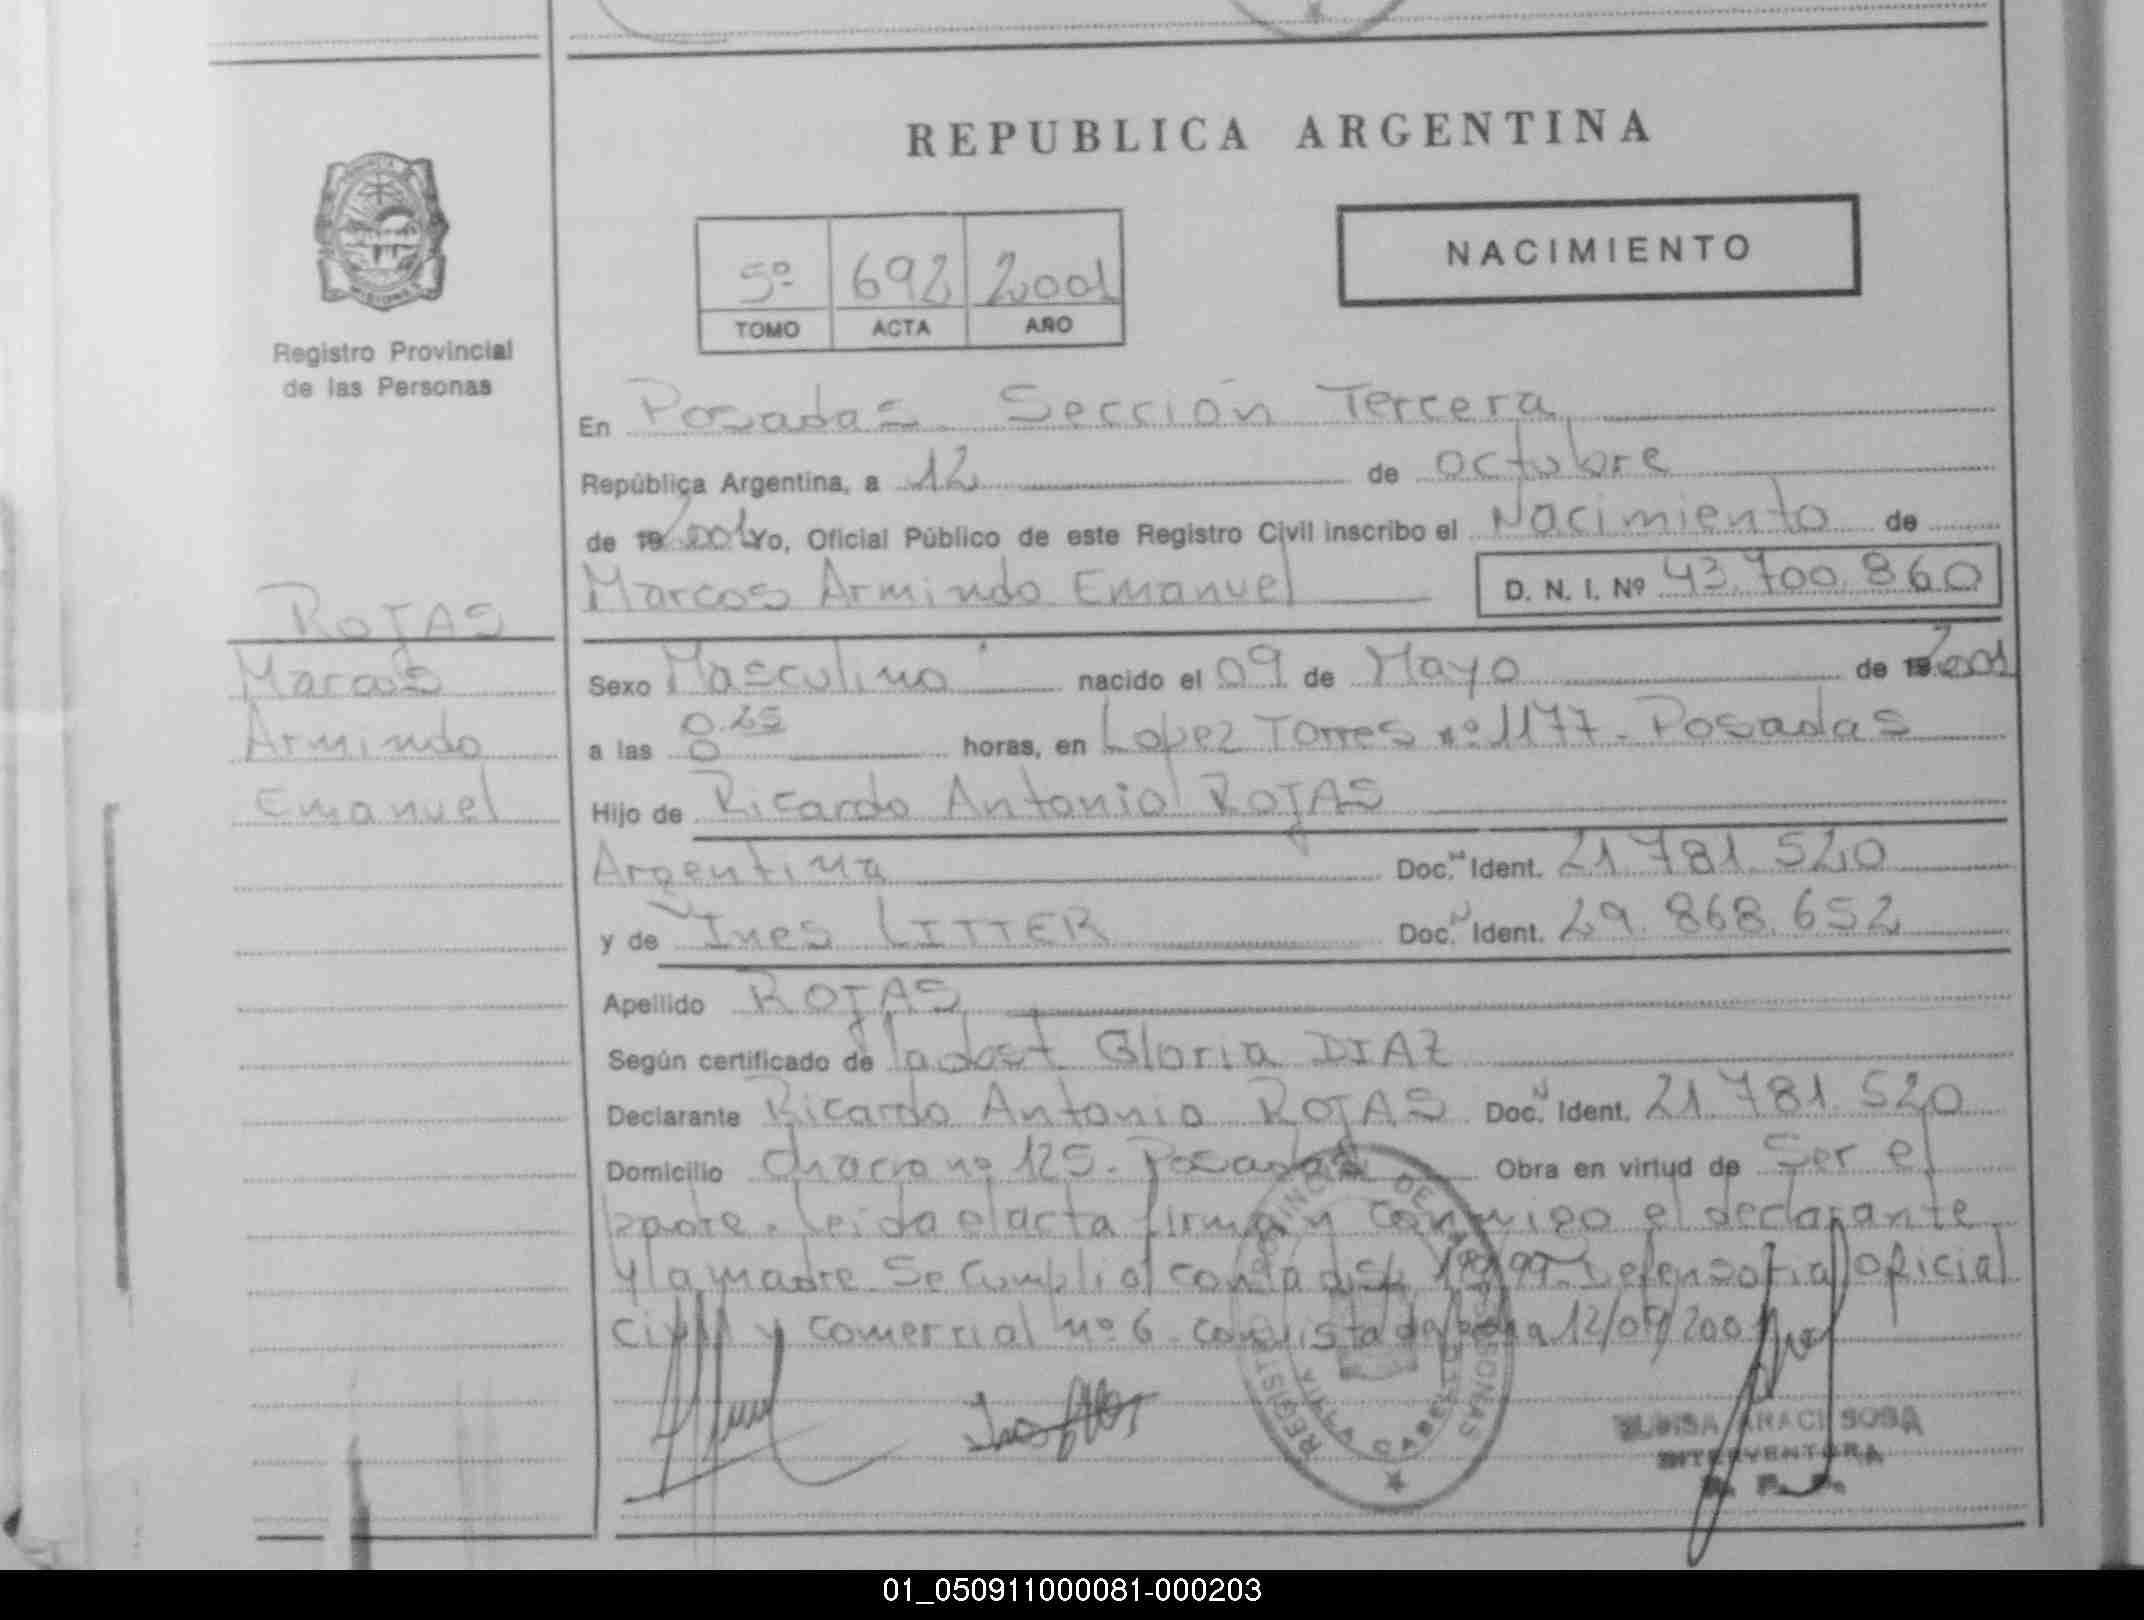 REPUBLICA ARGENTINA
5º 692 2001
TOMO ACTA AÑO
NACIMIENTO
MISIONES
Registro Provincial
de las Personas
ROJAS
Marcos
Armindo
Emanuel
En Posadas Sección Tercera
República Argentina, a 12 de octubre
de 19 2001 Yo, Oficial Público de este Registro Civil inscribo el Nacimiento de
Marcos Armindo Emanuel D. N. I. Nº 43.700.860
Sexo Masculino nacido el 09 de Mayo de 19 2001
a las 0.25 horas, en Lopez Torres nº 1177 - Posadas
0
Hijo de Ricardo Antonio ROJAS
Argentina Doc. Ident. 21.781.520
y de Ines LITTER Doc. Ident. 29.868.652
Apellido ROJAS
Según certificado de la obst Gloria DIAZ
Declarante Ricardo Antonio ROJAS Doc. Ident. 21.781.520
Domicilio chacra nº 125 - Posadas Obra en virtud de Ser el
padre. Leida el acta firman conmigo el declarante
y la madre. Se cumplió con la disp. Defensoria oficial
civil y comercial nº 6 12/09/2001
REGISTRO PROVINCIAL DE LAS PERSONAS
ARACI SOSA
INTERVENTORA
01_050911000081-000203